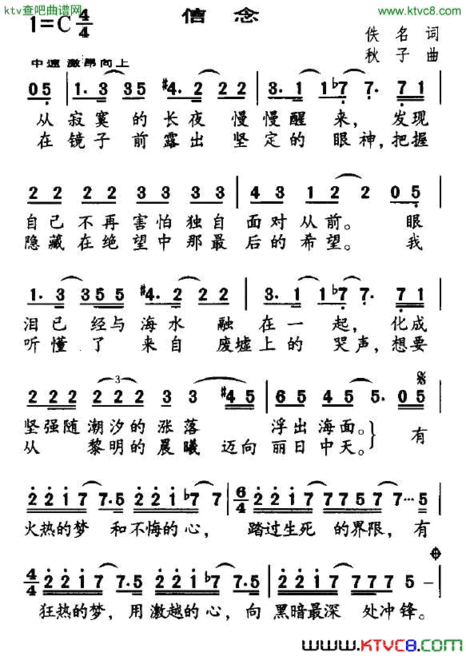 ktv查吧曲谱网
www.ktvc8.com
1=C 4/4
信念
佚名 词
秋子 曲
中速 激昂向上
0 5 | 1. 3 3 5 #4. 2 2 2 | 3. 1 1 b7 7. 7 1 |
从寂寞的长夜慢慢醒来,发现
在镜子前露出坚定的眼神,把握
2 2 2 2 3 3 3 3 | 4 3 1 2 2 0 5 |
自己不再害怕独自面对从前。眼
隐藏在绝望中那最后的希望。我
1. 3 3 5 5 #4. 2 2 2 | 3. 1 1 b7 7. 7 1 |
泪已经与海水融在一起,化成
听懂了来自废墟上的哭声,想要
2 2 2 2 2 2 3 3 #4 5 | 6 5 4 5 5. 0 5
坚强随潮汐的涨落浮出海面。} 有
从黎明的晨曦迈向丽日中天。
2 2 1 7 7. 5 2 2 1 b7 7 | 6/4 2 2 1 7 7 7 7 5 7 7 ··· 5 |
火热的梦和不悔的心,踏过生死的界限,有
4/4 2 2 1 7 7. 5 2 2 1 b7 7. 5 | 2 2 1 7 7 7. 5 5 – |
狂热的梦,用激越的心,向黑暗最深处冲锋。
www.KTVC8.com